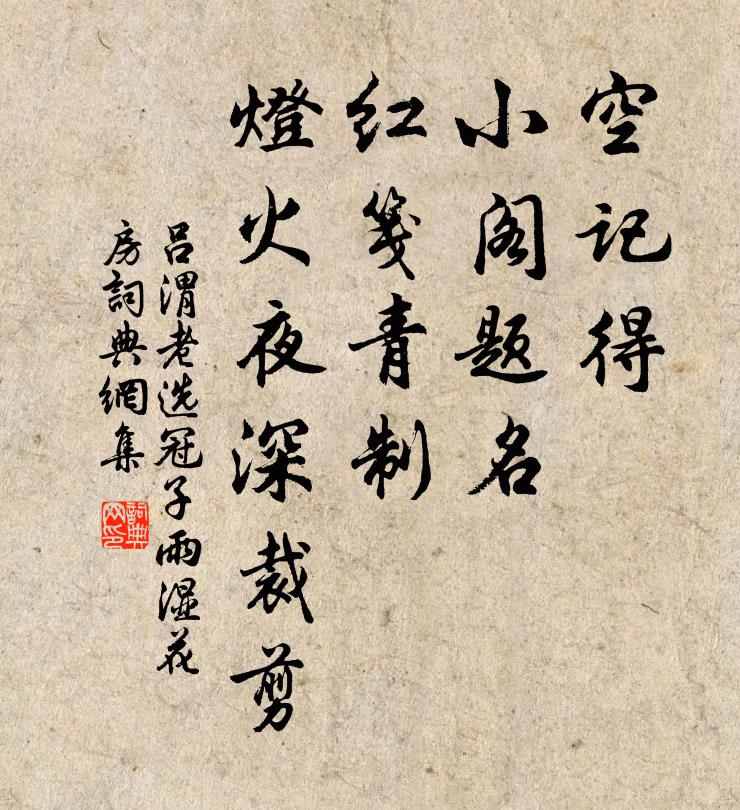 空记得
小阁题名
红笺青制
燈火夜深裁剪
吕渭老选冠子雨湿花
房詞典網集
詞典网印